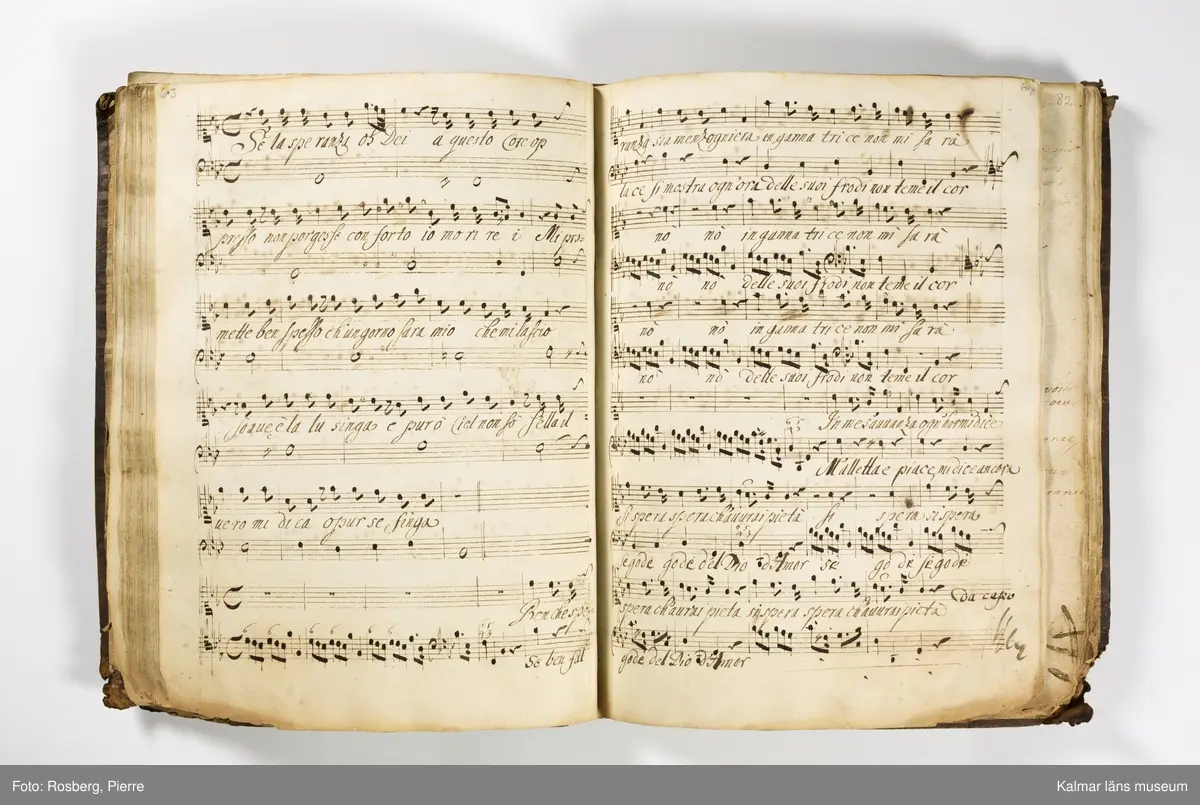 63
Se la speranza oh Dei a questo Core op
presso non porgesse conforto io mo ri re i Mi pro-
mette ben spesso ch'un gorno sara mio che mi lascio
soave è la lu singa e pur ò Ciel non sò s'ella il
vero mi di ca o pur se finga
Ben che spe-
se ben fal
64
82
ranza sia menzogniera in ganna tri ce non mi sa rà
la ce si mostra ogn'ora delle suoi frodi non teme il cor
no nò in ganna tri ce non mi sa rà
nò nò delle suoi frodi non teme il cor
nò nò in ganna tri ce non mi sa rà
nò nò delle suoi frodi non teme il cor
In me s'auuanza ogn'hor mi dice
M'alletta e piace, mi dice ancora
si spera spera ch'aurai pietà si spera si spera
se gode gode del Dio d'Amor se go de se gode
spera ch'aurai pieta si spera spera ch'aurai pietà
Da capo
gode del Dio d'Amor
Foto: Rosberg, Pierre
Kalmar läns museum